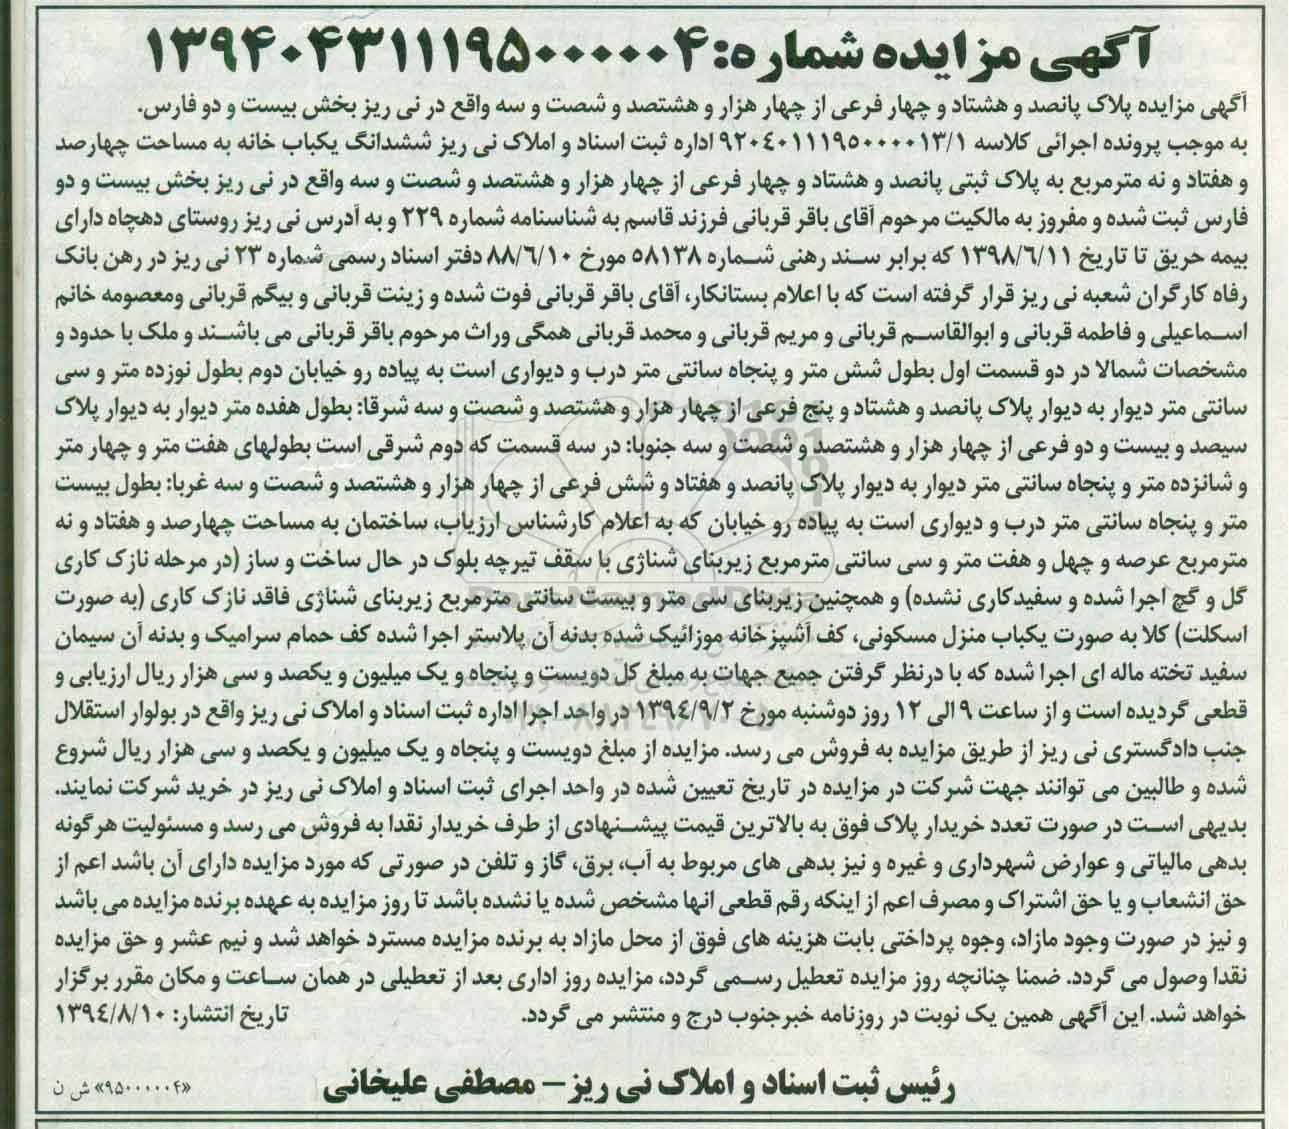 آگهی مزایده شماره: ۱۳۹۴۰۴۳۱۱۱۹۵۰۰۰۰۰۴
آگهی مزایده پلاک پانصد و هشتاد و چهار فرعی از چهار هزار و هشتصد و شصت و سه واقع در نی ریز بخش بیست و دو فارس.
به موجب پرونده اجرائی کلاسه ۹۲۰۴۰۱۱۱۹۵۰۰۰۰۱۳/۱ اداره ثبت اسناد و املاک نی ریز ششدانگ یکباب خانه به مساحت چهارصد
و هفتاد و نه مترمربع به پلاک ثبتی پانصد و هشتاد و چهار فرعی از چهار هزار و هشتصد و شصت و سه واقع در نی ریز بخش بیست و دو
فارس ثبت شده و مفروز به مالکیت مرحوم آقای باقر قربانی فرزند قاسم به شناسنامه شماره ۲۲۹ و به آدرس نی ریز روستای دهچاه دارای
بیمه حریق تا تاریخ ۱۳۹۸/۶/۱۱ که برابر سند رهنی شماره ۵۸۱۳۸ مورخ ۸۸/۶/۱۰ دفتر اسناد رسمی شماره ۲۳ نی ریز در رهن بانک
رفاه کارگران شعبه نی ریز قرار گرفته است که با اعلام بستانکار، آقای باقر قربانی فوت شده و زینت قربانی و بیگم قربانی ومعصومه خانم
اسماعیلی و فاطمه قربانی و ابوالقاسم قربانی و مریم قربانی و محمد قربانی همگی وراث مرحوم باقر قربانی می باشند و ملک با حدود و
مشخصات شمالا در دو قسمت اول بطول شش متر و پنجاه سانتی متر درب و دیواری است به پیاده رو خیابان دوم بطول نوزده متر و سی
سانتی متر دیوار به دیوار پلاک پانصد و هشتاد و پنج فرعی از چهار هزار و هشتصد و شصت و سه شرقا: بطول هفده متر دیوار به دیوار پلاک
سیصد و بیست و دو فرعی از چهار هزار و هشتصد و شصت و سه جنوبا: در سه قسمت که دوم شرقی است بطولهای هفت متر و چهار متر
و شانزده متر و پنجاه سانتی متر دیوار به دیوار پلاک پانصد و هفتاد و شش فرعی از چهار هزار و هشتصد و شصت و سه غربا: بطول بیست
متر و پنجاه سانتی متر درب و دیواری است به پیاده رو خیابان که به اعلام کارشناس ارزیاب، ساختمان به مساحت چهارصد و هفتاد و نه
مترمربع عرصه و چهل و هفت متر و سی سانتی مترمربع زیربنای شناژی با سقف تیرچه بلوک در حال ساخت و ساز (در مرحله نازک کاری
گل و گچ اجرا شده و سفیدکاری نشده) و همچنین زیربنای سی متر و بیست سانتی مترمربع زیربنای شناژی فاقد نازک کاری (به صورت
اسکلت) کلا به صورت یکباب منزل مسکونی، کف آشپزخانه موزائیک شده بدنه آن پلاستر اجرا شده کف حمام سرامیک و بدنه آن سیمان
سفید تخته ماله ای اجرا شده که با درنظر گرفتن جمیع جهات به مبلغ کل دویست و پنجاه و یک میلیون و یکصد و سی هزار ریال ارزیابی و
قطعی گردیده است و از ساعت ۹ الی ۱۲ روز دوشنبه مورخ ۱۳۹۴/۹/۲ در واحد اجرا اداره ثبت اسناد و املاک نی ریز واقع در بولوار استقلال
جنب دادگستری نی ریز از طریق مزایده به فروش می رسد. مزایده از مبلغ دویست و پنجاه و یک میلیون و یکصد و سی هزار ریال شروع
شده و طالبین می توانند جهت شرکت در مزایده در تاریخ تعیین شده در واحد اجرای ثبت اسناد و املاک نی ریز در خرید شرکت نمایند.
بدیهی است در صورت تعدد خریدار پلاک فوق به بالاترین قیمت پیشنهادی از طرف خریدار نقدا به فروش می رسد و مسئولیت هرگونه
بدهی مالیاتی و عوارض شهرداری و غیره و نیز بدهی های مربوط به آب، برق، گاز و تلفن در صورتی که مورد مزایده دارای آن باشد اعم از
حق انشعاب و یا حق اشتراک و مصرف اعم از اینکه رقم قطعی انها مشخص شده یا نشده باشد تا روز مزایده به عهده برنده مزایده می باشد
و نیز در صورت وجود مازاد، وجوه پرداختی بابت هزینه های فوق از محل مازاد به برنده مزایده مسترد خواهد شد و نیم عشر و حق مزایده
نقدا وصول می گردد. ضمنا چنانچه روز مزایده تعطیل رسمی گردد، مزایده روز اداری بعد از تعطیلی در همان ساعت و مکان مقرر برگزار
خواهد شد. این آگهی همین یک نوبت در روزنامه خبرجنوب درج و منتشر می گردد. تاریخ انتشار: ۱۳۹۴/۸/۱۰
رئیس ثبت اسناد و املاک نی ریز – مصطفی علیخانی
«۹۵۰۰۰۰۰۴» ش ن
ParsNamadData